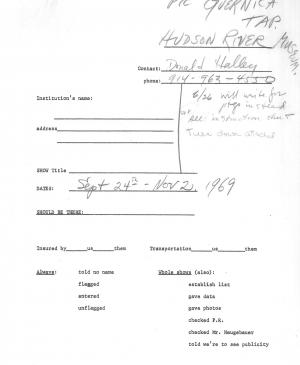 PIC GUERNICA
TAP.
HUDSON RIVER MUSEUM.
Contact: Donald Halley
phone: 914-963-4550
Institution's name:
6/26 will write for
address
SHOW Title
DATES: Sept 24th - Nov 2, 1969
SHOULD BE THERE:
Insured by us them Transportation us them
Always: told no name Whole shows (also):
flagged establish list
entered gave data
unflagged gave photos
checked P.R.
checked Mr. Naugebauer
told we're to see publicity